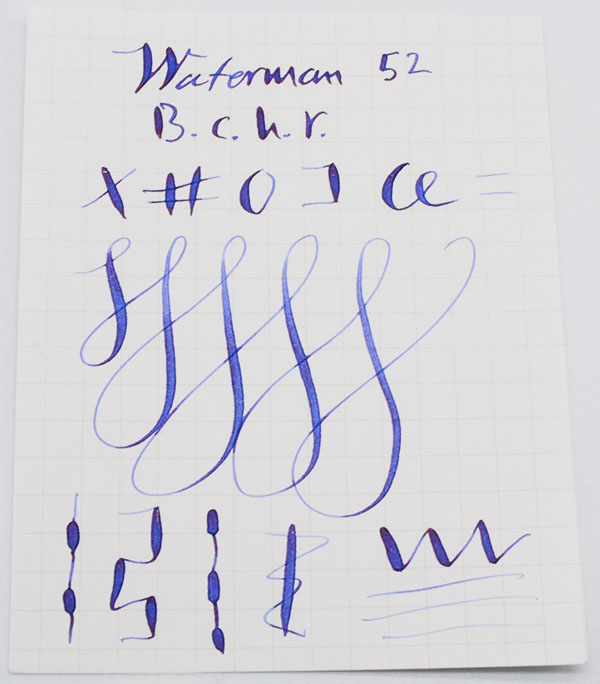 Waterman 52
B.c.h.r.
X # O ] a =